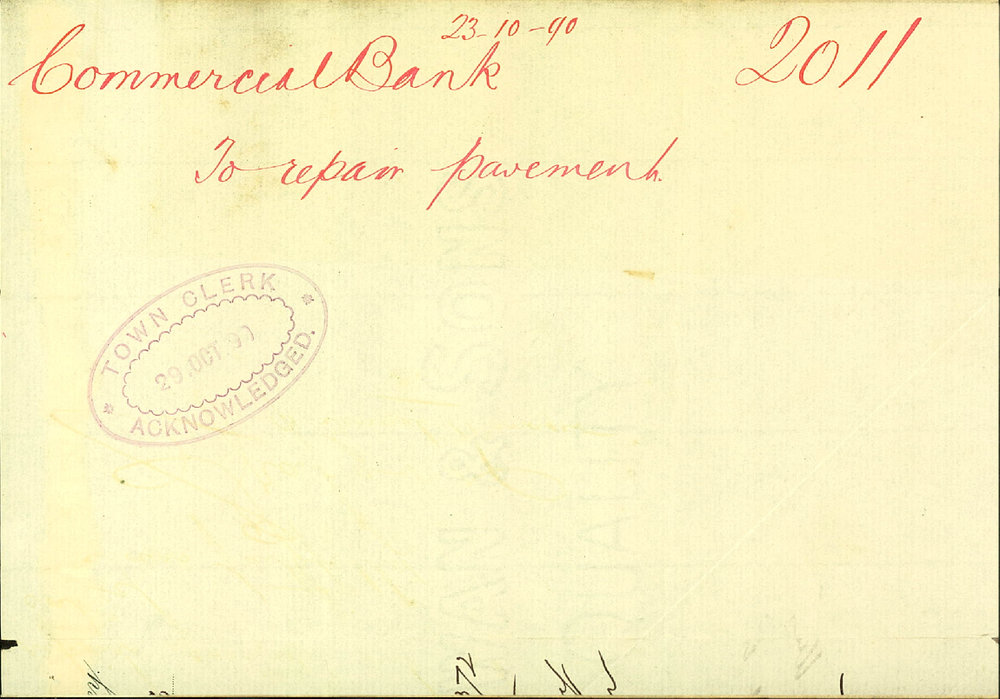 23-10-90
Commercial Bank 2011
To repair pavement.
TOWN CLERK
29.OCT.90
ACKNOWLEDGED.
372